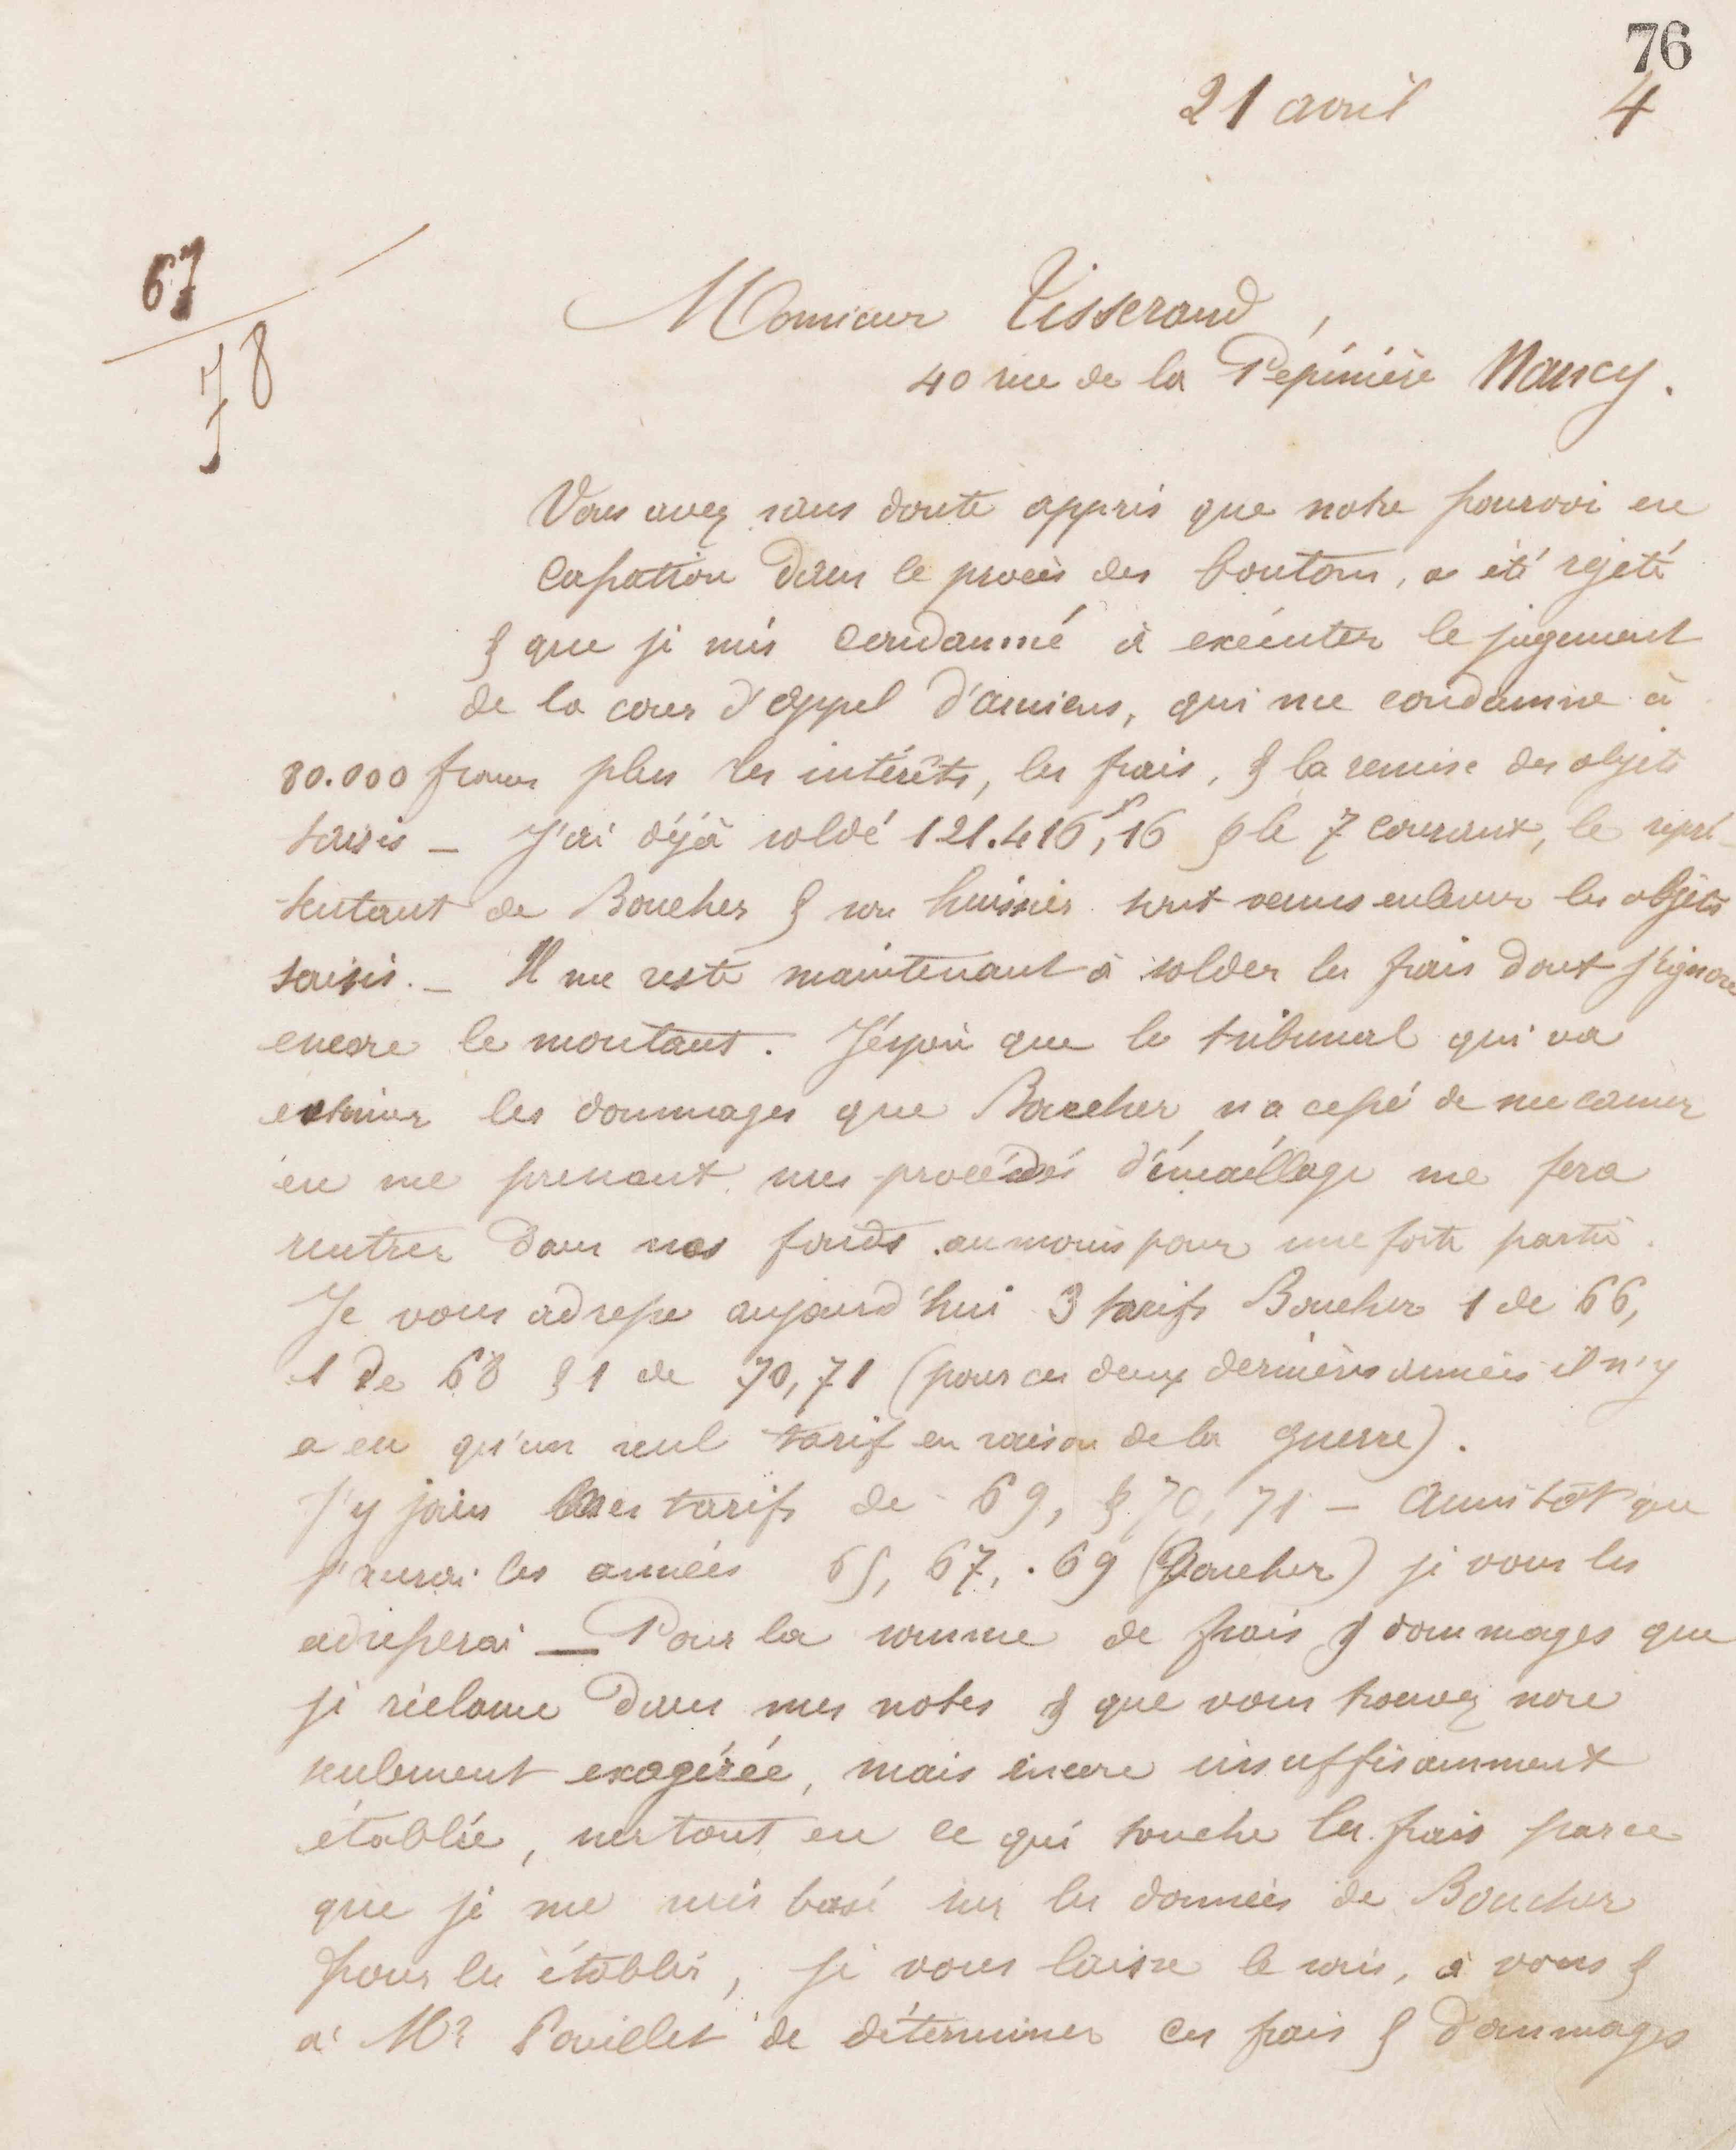 76
21 avril 4
67
78
Monsieur Tisserand,
40 rue de la Pépinière Nancy.
Vous avez sans doute appris que notre pourvoi en
Cassation dans le procès des boutons, a été rejeté
& que je suis condamné à exécuter le jugement
de la cour d'appel d'amiens, qui me condamne à
80.000 francs plus les intérêts, les frais, & la remise des objets
saisis – J'ai déjà soldé 121.416,f16 & le 7 courant, le repré-
sentant de Boucher & son huissier sont venus enlever les objets
saisis. – Il me reste maintenant à solder les frais dont j'ignore
encore le montant. J'espère que le tribunal qui va
estimer les dommages que Boucher n'a cessé de me causer
en me prenant mes procédés d'émaillage me fera
rentrer dans nos fonds au moins pour une forte partie.
Je vous adresse aujourd'hui 3 tarifs Boucher 1 de 66,
1 de 68 & 1 de 70, 71 (pour ces deux dernières années il n'y
a eu qu'un seul tarif en raison de la guerre).
J'y joins mes tarifs de 69, & 70, 71 – Aussitôt que
j'aurai les années 65, 67, 69 (Boucher) je vous les
adresserai – Pour la somme de frais & dommages que
je réclame dans mes notes & que vous trouvez non
seulement exagérée, mais encore insuffisamment
établie, surtout en ce qui touche les frais parce
que je me suis basé sur les données de Boucher
pour les établir, je vous laisse le soin, à vous &
à Mr Pouillet de déterminer ces frais & dommages